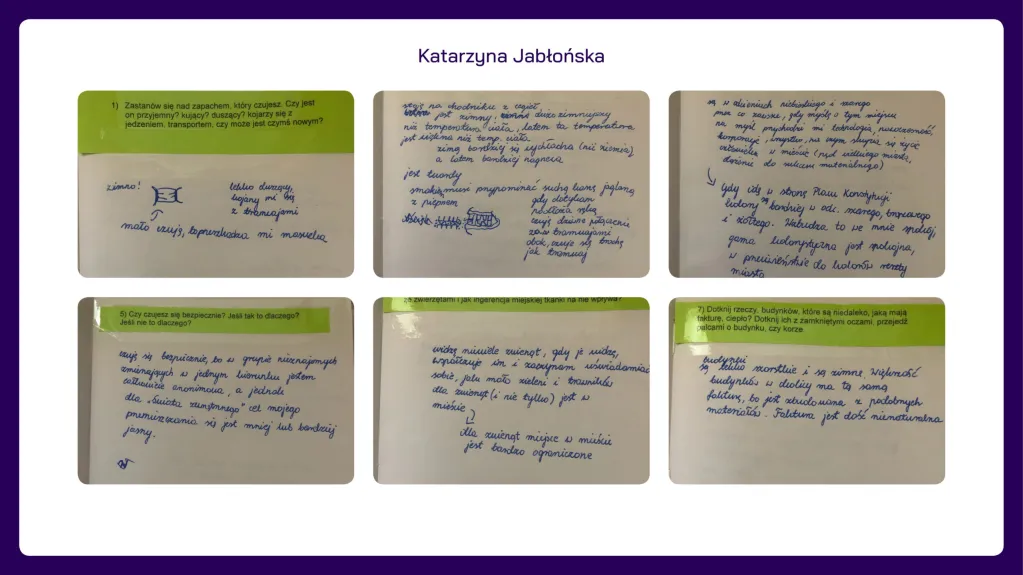 Katarzyna Jabłońska
1) Zastanów się nad zapachem, który czujesz. Czy jest
on przyjemny? kujący? duszący? kojarzy się z
jedzeniem, transportem, czy może jest czymś nowym?
zimno!
lekko duszący,
kojarzy mi się
z tramwajami
mało czuję, bo przeszkadza mi maseczka
na chodniku z cegieł
jest zimny, dużo zimniejszy
niż temperatura ciała, latem ta temperatura
jest niż temp. ciała
zimą bardziej się wychładza (niż ziemia)
a latem bardziej nagrzewa
jest twardy
przypominać suchą kaszę jaglaną
z piaskiem
gdy dotykam
podłoża
czuję dziwne połączenie
z tramwajami
obok, czuję się trochę
jak tramwaj
są w odcieniach niebieskiego i szarego
gdy myślę o tym miejscu
na myśl przychodzi mi technologia, nowoczesność,
korporacje, na czym skupia się życie
człowieka w mieście (pęd wielkiego miasta,
dążenie do sukcesu materialnego)
Gdy idę w stronę Placu Konstytucji
kolory są bardziej w odc. szarego, brązowego
i żółtego. Wzbudza to we mnie spokój,
gama kolorystyczna jest spokojna,
w przeciwieństwie do kolorów reszty
miasta
5) Czy czujesz się bezpiecznie? Jeśli tak to dlaczego?
Jeśli nie to dlaczego?
czuję się bezpiecznie, bo w grupie nieznajomych
zmierzających w jednym kierunku jestem
całkowicie anonimowa, a jednak
dla „świata zewnętrznego" cel mojego
przemieszczania się jest mniej lub bardziej
jasny.
ze zwierzętami i jak ingerencja miejskiej tkanki na nie wpływa?
widzę niewiele zwierząt, gdy je widzę,
współczuję im i zaczynam uświadamiać
sobie, jak mało zieleni i trawników
dla zwierząt (i nie tylko) jest w
mieście
dla zwierząt miejsce w mieście
jest bardzo ograniczone
7) Dotknij rzeczy, budynków, które są niedaleko, jaką mają
fakturę, ciepło? Dotknij ich z zamkniętymi oczami, przejedź
palcami o budynku, czy korze.
budynki
są lekko szorstkie i są zimne. Większość
budynków w okolicy ma tą samą
fakturę, bo jest zbudowana z podobnych
materiałów. Faktura jest dość nienaturalna